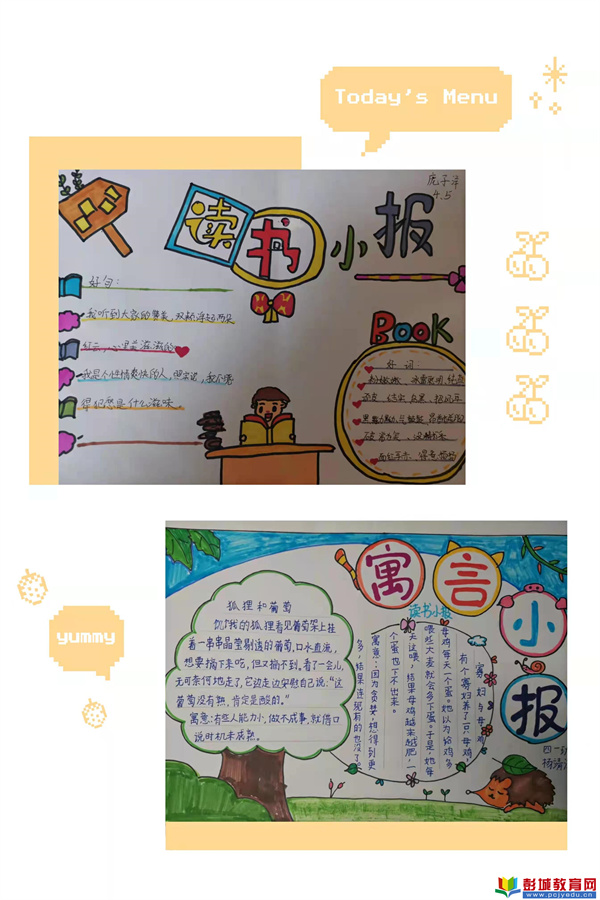 Today's Menu
4.5
读书小报
好句：
我听到大家的赞美，双颊浮起两朵
红云，心里美滋滋的
得犯愁是什么滋味
BOOK
好词
yummy
寓言小报
读书小报
狐狸和葡萄
饥饿的狐狸看见葡萄架上挂
着一串串晶莹剔透的葡萄，口水直流，
想要摘下来吃，但又摘不到。看了一会儿，
无可奈何地走了，它边走边安慰自己说："这
葡萄没有熟，肯定是酸的。"
寓意：有些人能力小，做不成事，就借口
说时机未成熟。
寡妇与母鸡
有个寡妇养了一只母鸡，
母鸡每天一个蛋。她以为给鸡多
喂些大麦就会多下蛋。于是，她每
天这喂，结果母鸡越来越肥，一
个蛋也下不出来。
寓意：因为贪婪，想得到更
多，结果连现有的也没了。
彭城教育网
www.pcjyedu.cn